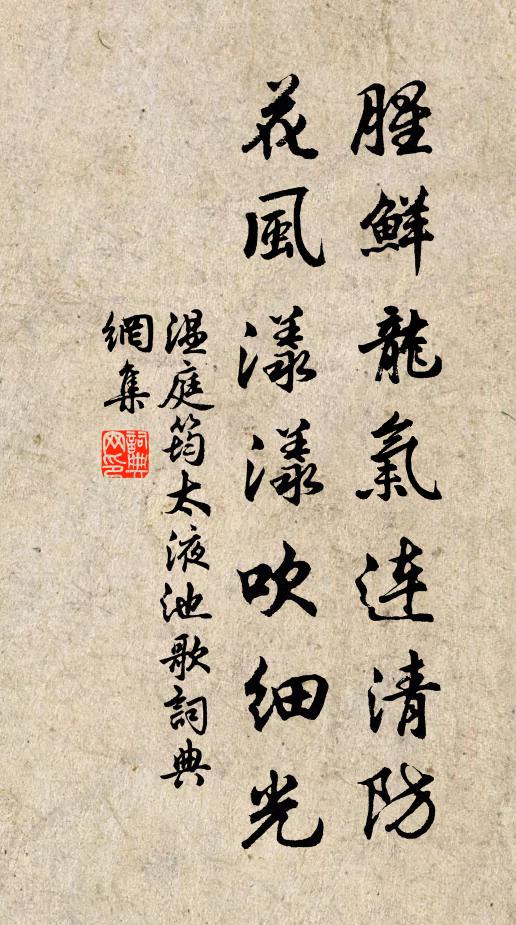 腥鮮龍氣連清防
花風漾漾吹細光
温庭筠太液池歌詞典
網集
詞典網印